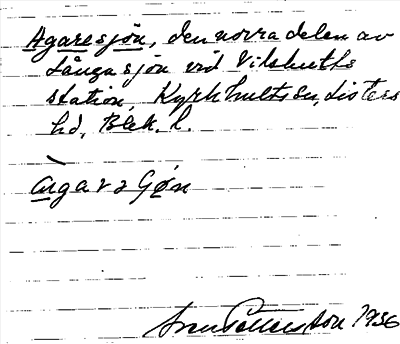 Agaresjön, den norra delen av
Långasjön vid Vilshults
station, Kyrkhults sn, Listers
hd, Blek. l.
agarə
Sven Pettersson 1936